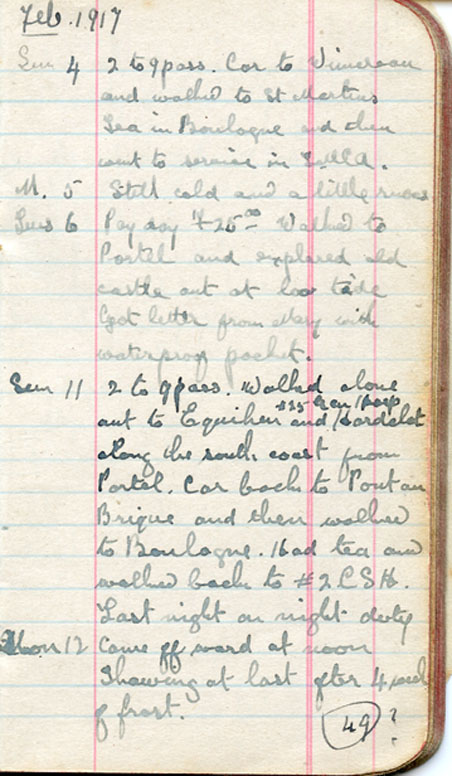 Feb. 1917
Sun 4 2 to 9 pass. Car to Wimereau
and walked to St Martins
Tea in Boulogne and then
went to service in YMCA.
M. 5 Still cold and a little snow
Tues 6 Pay day 25 00 Walked to
Portel and explored old
castle out at low tide
Got letter from Mary with
waterproof packet.
Sun 11 2 to 9 pass. Walked alone
#25 Gen Hosp
out to Equihen and Hardelot
along the south coast from
Portel. Car back to Pont au
Brique and then walked
to Boulogne. Had tea and
walked back to #2 C S H.
Last night on night duty
Mon 12 Came off ward at noon
Thawing at last after 4 week
of frost.
49 ?